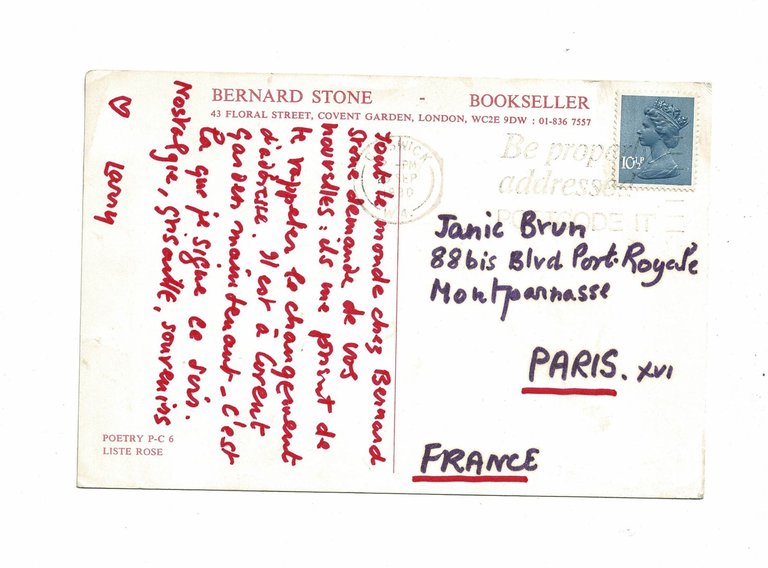 BERNARD STONE - BOOKSELLER
43 FLORAL STREET, COVENT GARDEN, LONDON, WC2E 9DW : 01-836 7557
10½P
PM
SEP
Be proper
addresse
POSTCODE IT
Tout le monde chez Bernard
Stone demande de vos
nouvelles : ils me prient de
te rappeler le changement
d'adresse. Il est à Covent
Garden maintenant_ C'est
là que je signe ce soir.
Nostalgie, grisaille, souvenirs
♡ Larry
Janic Brun
88bis Blvd Port. Royale
Montparnasse
PARIS. XVI
FRANCE
POETRY P-C 6
LISTE ROSE